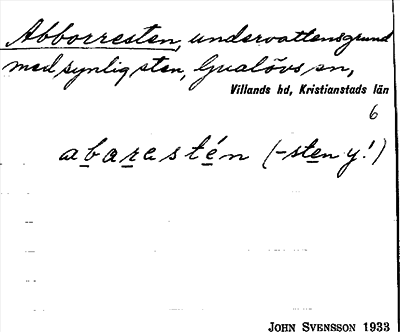 Abborresten, undervattensgrund
med synlig sten, Gualövs sn,
Villands hd, Kristianstads län
6
abarestén (-sten y!)
JOHN SVENSSON 1933